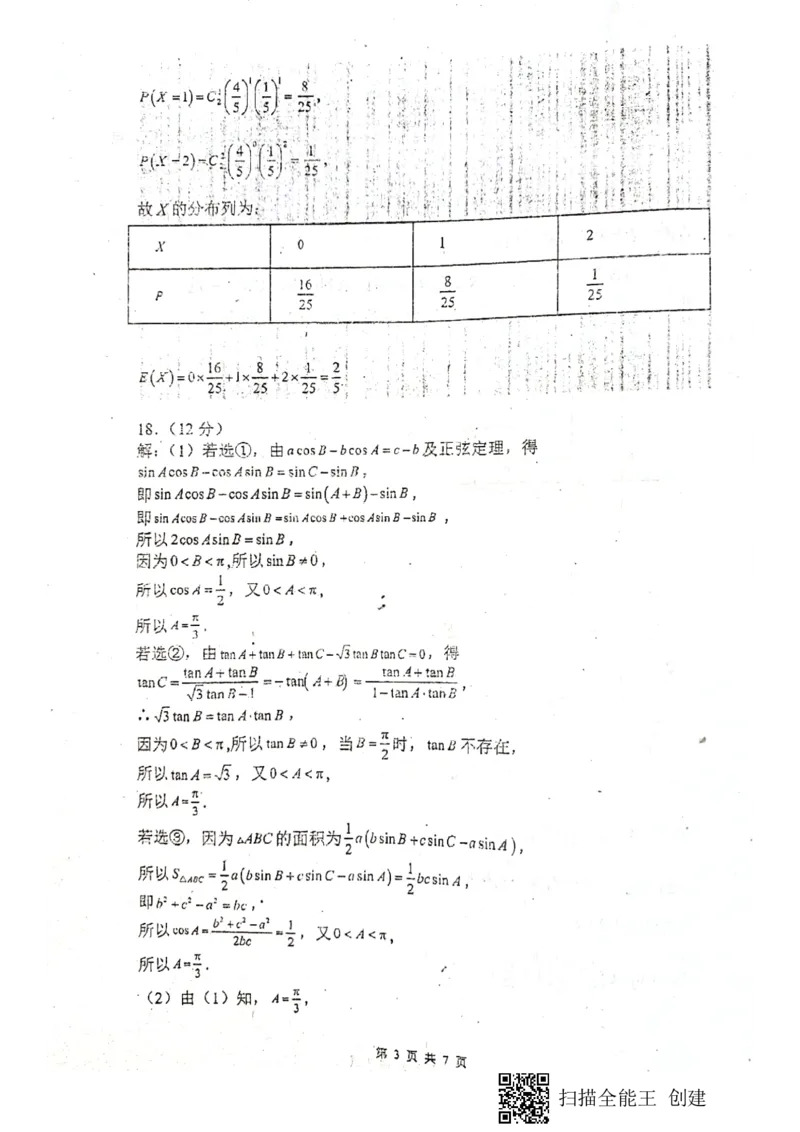 P(X=1)=C₂¹(4/5)¹(1/5)¹=8/25,
P(X=2)=C₂²(4/5)⁰(1/5)²=1/25,
故X的分布列为:
X 0 1 2
P 16/25 8/25 1/25
E(X)=0×16/25+1×8/25+2×1/25=2/5
18.（12分）
解:（1）若选①，由acosB-bcosA=c-b及正弦定理，得
sinAcosB-cosAsinB=sinC-sinB,
即sinAcosB-cosAsinB=sin(A+B)-sinB,
即sinAcosB-cosAsinB=sinAcosB+cosAsinB-sinB,
所以2cosAsinB=sinB,
因为0<B<π,所以sinB≠0,
所以cosA=1/2，又0<A<π,
所以A=π/3.
若选②，由tanA+tanB+tanC-√3tanBtanC=0，得
tanC=(tanA+tanB)/(√3tanB-1)=-tan(A+B)=(tanA+tanB)/(1-tanA·tanB),
∴√3tanB=tanA·tanB,
因为0<B<π,所以tanB≠0，当B=π/2时，tanB不存在,
所以tanA=√3，又0<A<π,
所以A=π/3.
若选③，因为△ABC的面积为1/2a(bsinB+csinC-asinA),
所以S△ABC=1/2a(bsinB+csinC-asinA)=1/2bcsinA,
即b²+c²-a²=bc,
所以cosA=(b²+c²-a²)/2bc=1/2，又0<A<π,
所以A=π/3.
（2）由（1）知，A=π/3,
第3页共7页
扫描全能王 创建